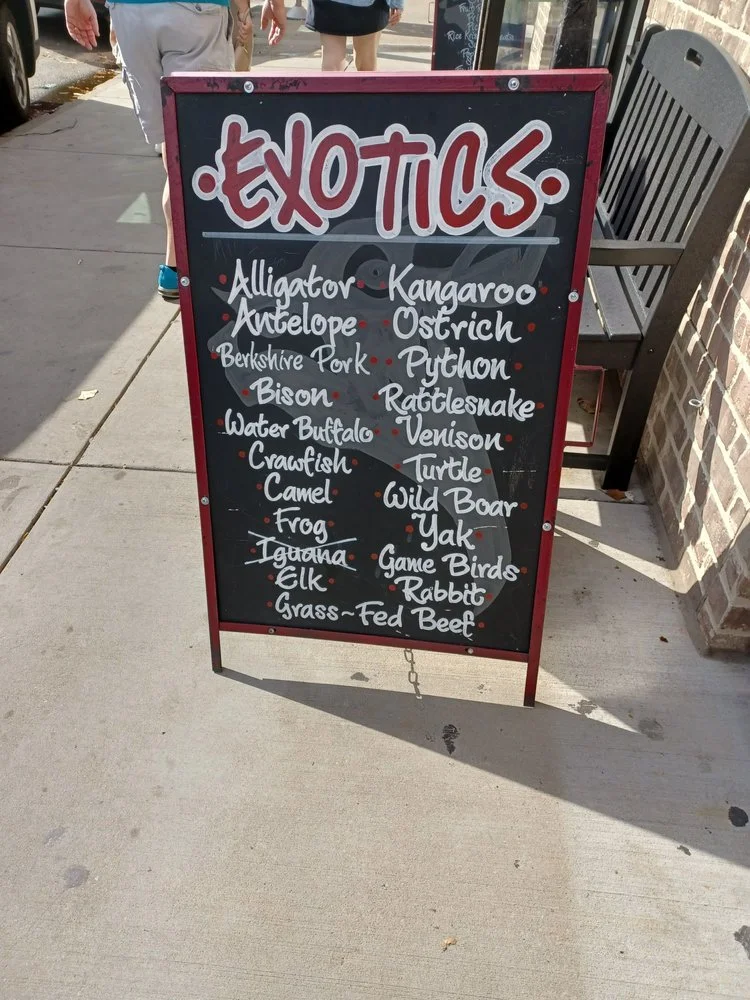 EXOTICS
Alligator
Antelope
Berkshire Pork
Bison
Water Buffalo
Crawfish
Camel
Frog
Iguana
Elk
Kangaroo
Ostrich
Python
Rattlesnake
Venison
Turtle
Wild Boar
Yak
Game Birds
Rabbit
Grass-Fed Beef